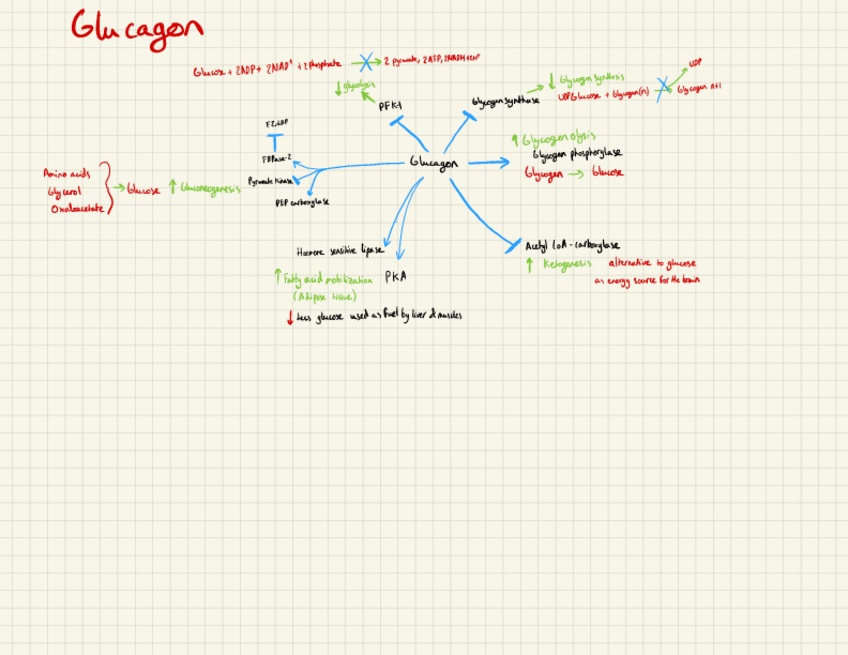 Glucagon
Glucose + 2ADP + 2NAD⁺ + 2 Phosphate → 2 pyruvate, 2ATP, 2NADH + 2H⁺
↓ glycolysis
PFK-1
Glycogen synthase
↓ Glycogen synthesis
UDP Glucose + Glycogen(n) → Glycogen n+1
UDP
F2,6BP
FBPase-2
Pyruvate kinase
PEP carboxylase
Amino acids
Glycerol
Oxaloacetate
→ Glucose ↑ Gluconeogenesis
Glucagon
↑ Glycogenolysis
Glycogen phosphorylase
Glycogen → Glucose
Hormone sensitive lipase
↑ Fatty acid mobilization
(Adipose tissue)
PKA
↓ Less glucose used as fuel by liver & muscles
Acetyl CoA-carboxylase
↑ Ketogenesis alternative to glucose
as energy source for the brain